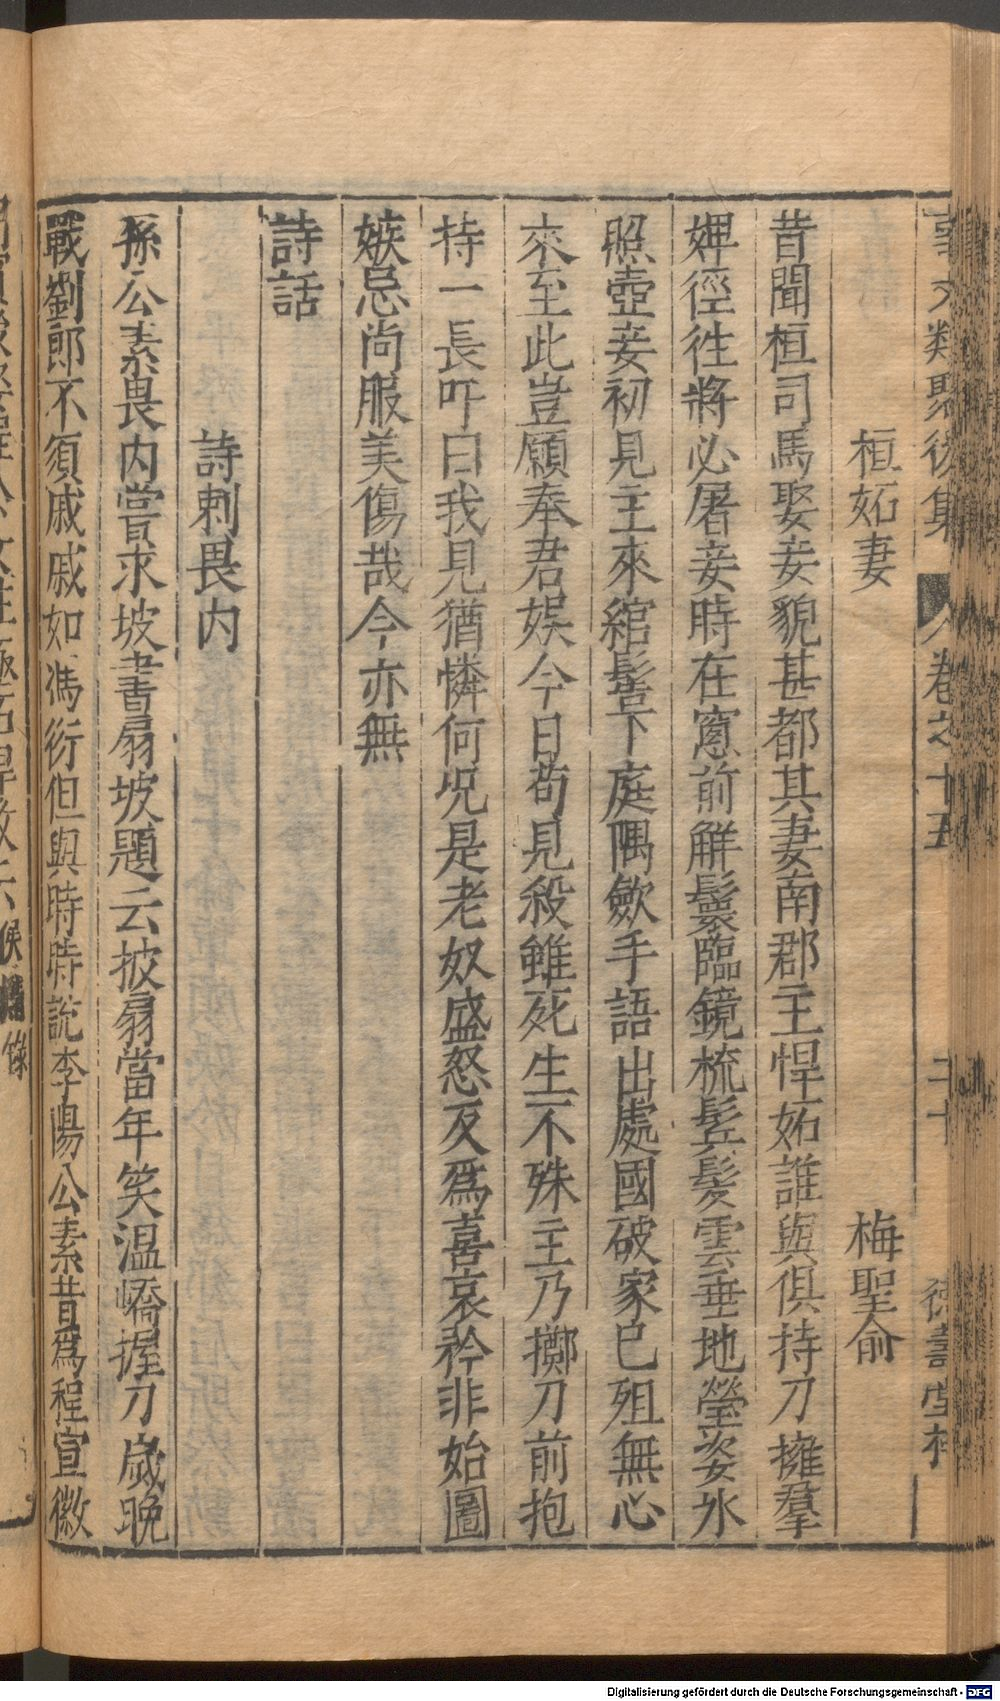 事文類聚後集 卷之十五 二十 德壽堂梓
桓妬妻 梅聖俞
昔聞桓司馬娶妾貌甚都其妻南郡主悍妬誰與俱持刀擁羣
婢徑徃將必屠妾時在窻前解鬟臨鏡梳鬂髮雲垂地瑩姿氷
照壺妾初見主來綰髻下庭隅斂手語出處國破家已殂無心
來至此豈願奉君娱今日苟見殺雖死生不殊主乃擲刀前抱
持一長吁曰我見猶憐何况是老奴盛怒反爲喜哀矜非始圖
嫉忌尚服美傷哉今亦無
詩話
詩刺畏内
孫公素畏内嘗求坡書扇坡題云披扇當年笑温嶠握刀歲晚
戰劉郎不須戚戚如馮衍但與時時說李陽公素昔爲程宣徽
侯鯖錄
Digitalisierung gefördert durch die Deutsche Forschungsgemeinschaft - DFG